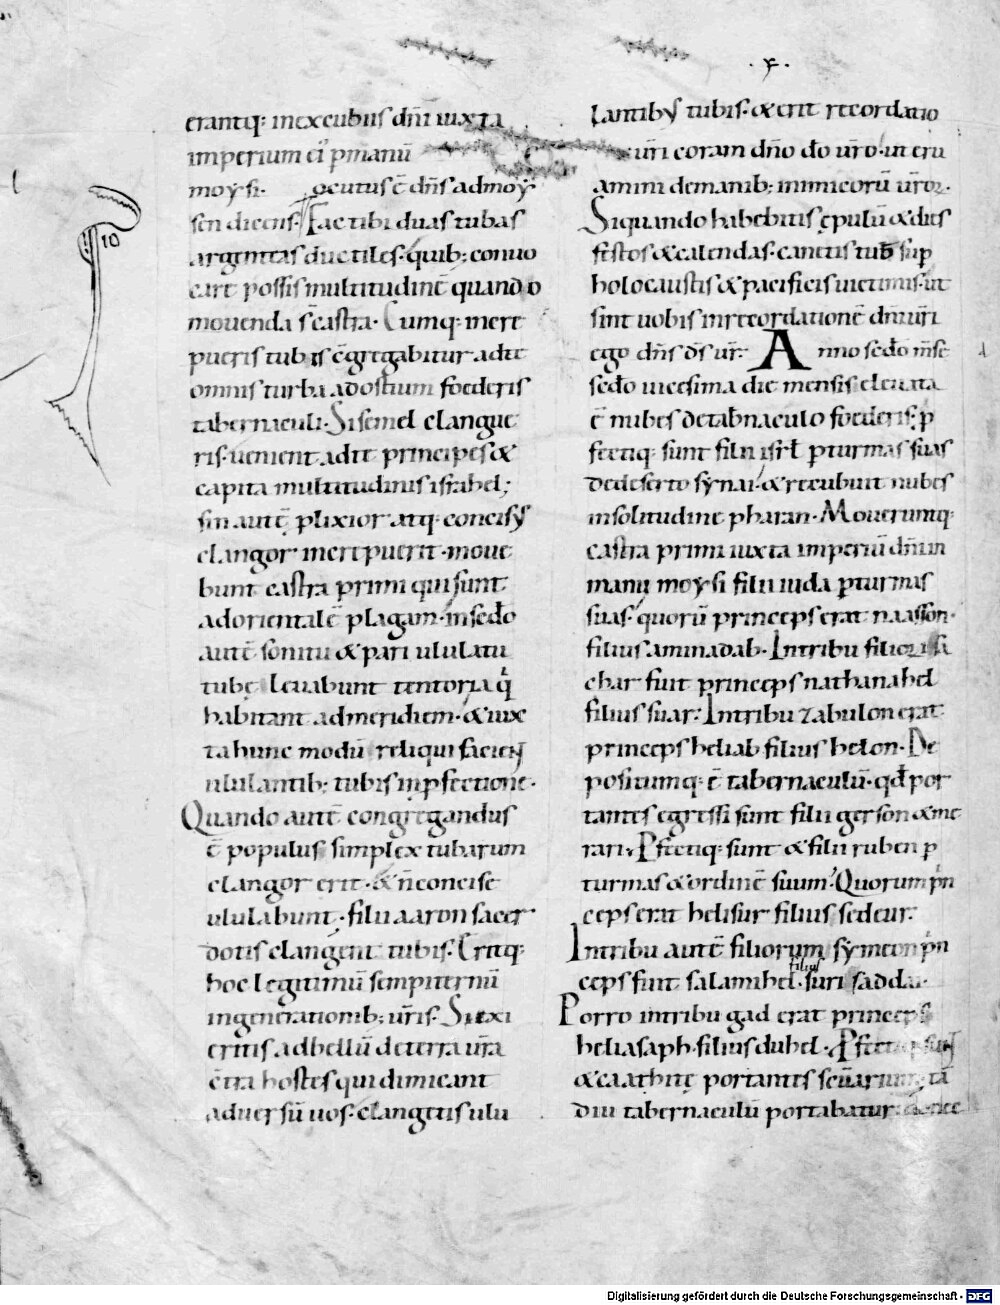 ·x·
erantq: inexcubiis dñi iuxta
imperium ei' p manũ
moysi. ocutus ē dñs ad moy
sen dicens. Fac tibi duas tubas
argenteas ductiles. quib; conuo
care possis multitudinē quando
mouenda sē castra. Cumq: incre
pueris tubis cgregabitur ad te
omnis turba ad ostium foederis
tabernaculi. Si semel clangue
ris. uenient ad te principes &
capita multitudinis israhel;
sin autē plixior atq. concisus
clangor increpuerit. moue
bunt castra primi qui sunt
ad orientalē plagam. in sedo
autē sonitu & pari ululatu
tubę leuabunt tentoria q
habitant ad meridiem. & iux
ta hunc modũ reliqui facient
ululantib; tubis in pfectione.
Quando autē congregandus
ē populus simplex tubarum
clangor erit. & ñ concise
ululabunt. filii aaron sacer
dotis clangent tubis. Eritq:
hoc legitimũ sempiternũ
in generationib; uris. Si exi
eritis ad bellũ de terra ura
ctra hostes qui dimicant
aduersũ uos. clangetis ulu
10
lantibus tubis. & erit recordatio
uri coram dño do uro. ut eru
amini de manib; inimicorũ uror.
Si quando habebitis epulũ & dies
festos & calendas. canetis tub sup
holocaustis & pacificis uictimis. ut
sint uobis in recordationē di uri
ego dñs ds ur. Anno sedo mse
sedo uicesima die mensis eleuata
ē nubes de tabnaculo foederis. p
fectiq: sunt filii isrl p turmas suas
de deserto synai. & recubuit nubes
in solitudine pharan. Moueruntq:
castra primi iuxta imperiũ dñi in
manu moysi filii iuda p turmas
suas. quorũ princeps erat naasson.
filius aminadab. In tribu filior isa
char fuit princeps nathanahel
filius suar. In tribu zabulon erat
princeps heliab filius helon. De
positumq: ē tabernaculũ. qd por
tantes egressi sunt filii gerson & me
rari. Pfectiq: sunt & filii ruben p
turmas & ordinē suum. Quorum pin
ceps erat helisur filius sedeur.
In tribu autē filiorum symeon pin
ceps fuit salamihel. filius suri saddai.
Porro in tribu gad erat princeps
heliasaph. filius duhel. Pfectiq: sunt
& caathitę portantes scuarium. tã
diu tabernaculũ portabatur donec
Digitalisierung gefördert durch die Deutsche Forschungsgemeinschaft - DFG